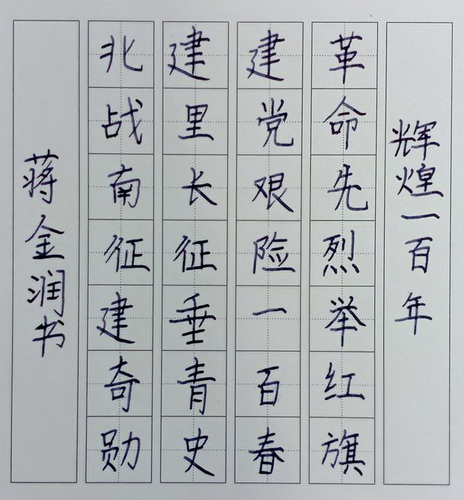 辉煌一百年
革命先烈举红旗
建党艰险一百春
建里长征垂青史
北战南征建奇勋
蒋金润书